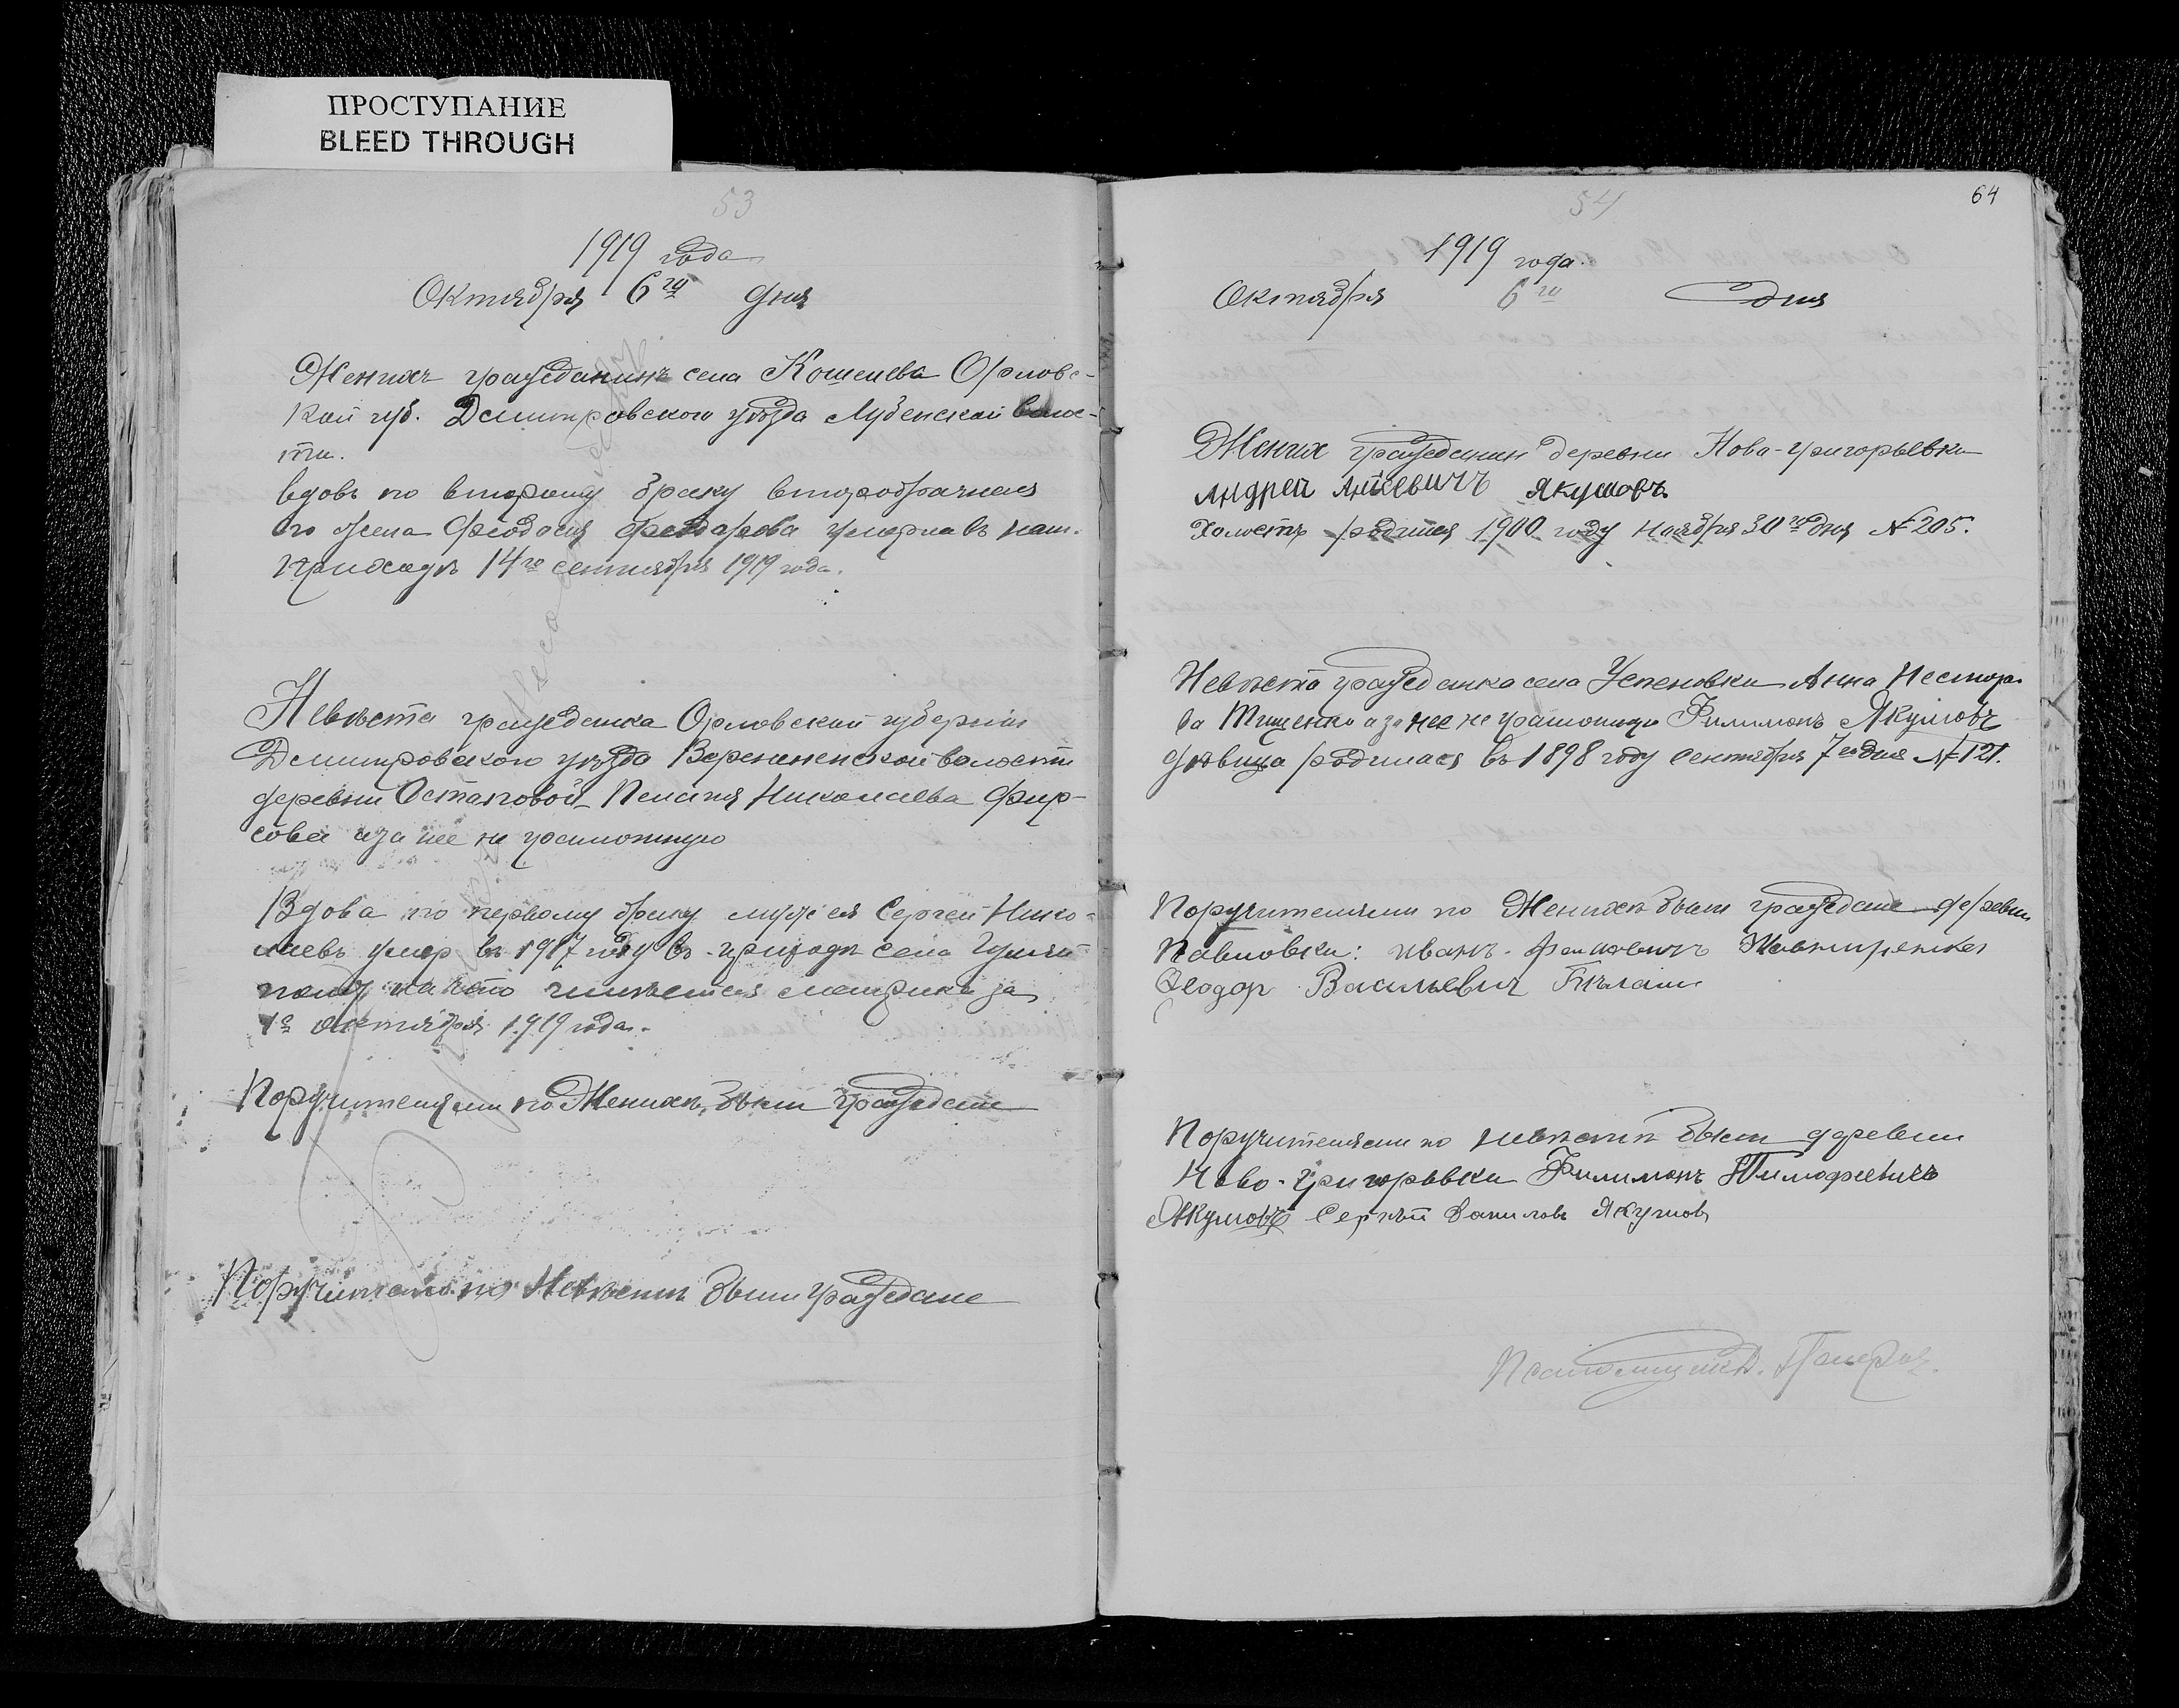 ПРОСТУПАНИЕ
BLEED THROUGH
53
1919 года
Октября 6го дня
Женихъ гражданинъ села Кошелева Орловс-
кой губ. Дмитровского уѣзда Лубенской волос-
ти.
вдовъ по второму браку второбрачная
его жена Феодосия умерла въ наш.
приходѣ 14го сентября 1919 года.
Невѣста гражданка Орловской губернии
Дмитровского уѣзда волости
деревни Остаповой Пелагия Николаева Фир-
сова а за нее не грамотную
Вдова по первому браку муж ея Сергей Нико-
лаевъ умер въ 1917 году въ приходѣ села
на что имѣется метрика за
1е октября 1919 года.
Поручителями по Женихѣ были граждане
Поручители по Невѣстѣ были граждане
54
64
1919 года.
Октября 6го дня
Жених гражданин деревни Ново-григорьевки
Андрей Якушовъ
Холостъ родился 1900 году ноября 30го дня № 205.
Невѣста гражданка села Успеновки Анна Нестора-
ва Тищенко а за нее не грамотную Филимонъ Якушовъ
дѣвица родилася въ 1898 году Сентября 7го дня № 121.
Поручителями по Женихѣ были граждане деревни
Павловки: Иванъ
Ѳеодор Васильевич
Поручителями по невѣстѣ были деревни
Ново-григорьвки Филимонъ Тимофеевичъ
Якушовъ Сергѣй Данилов Якушов